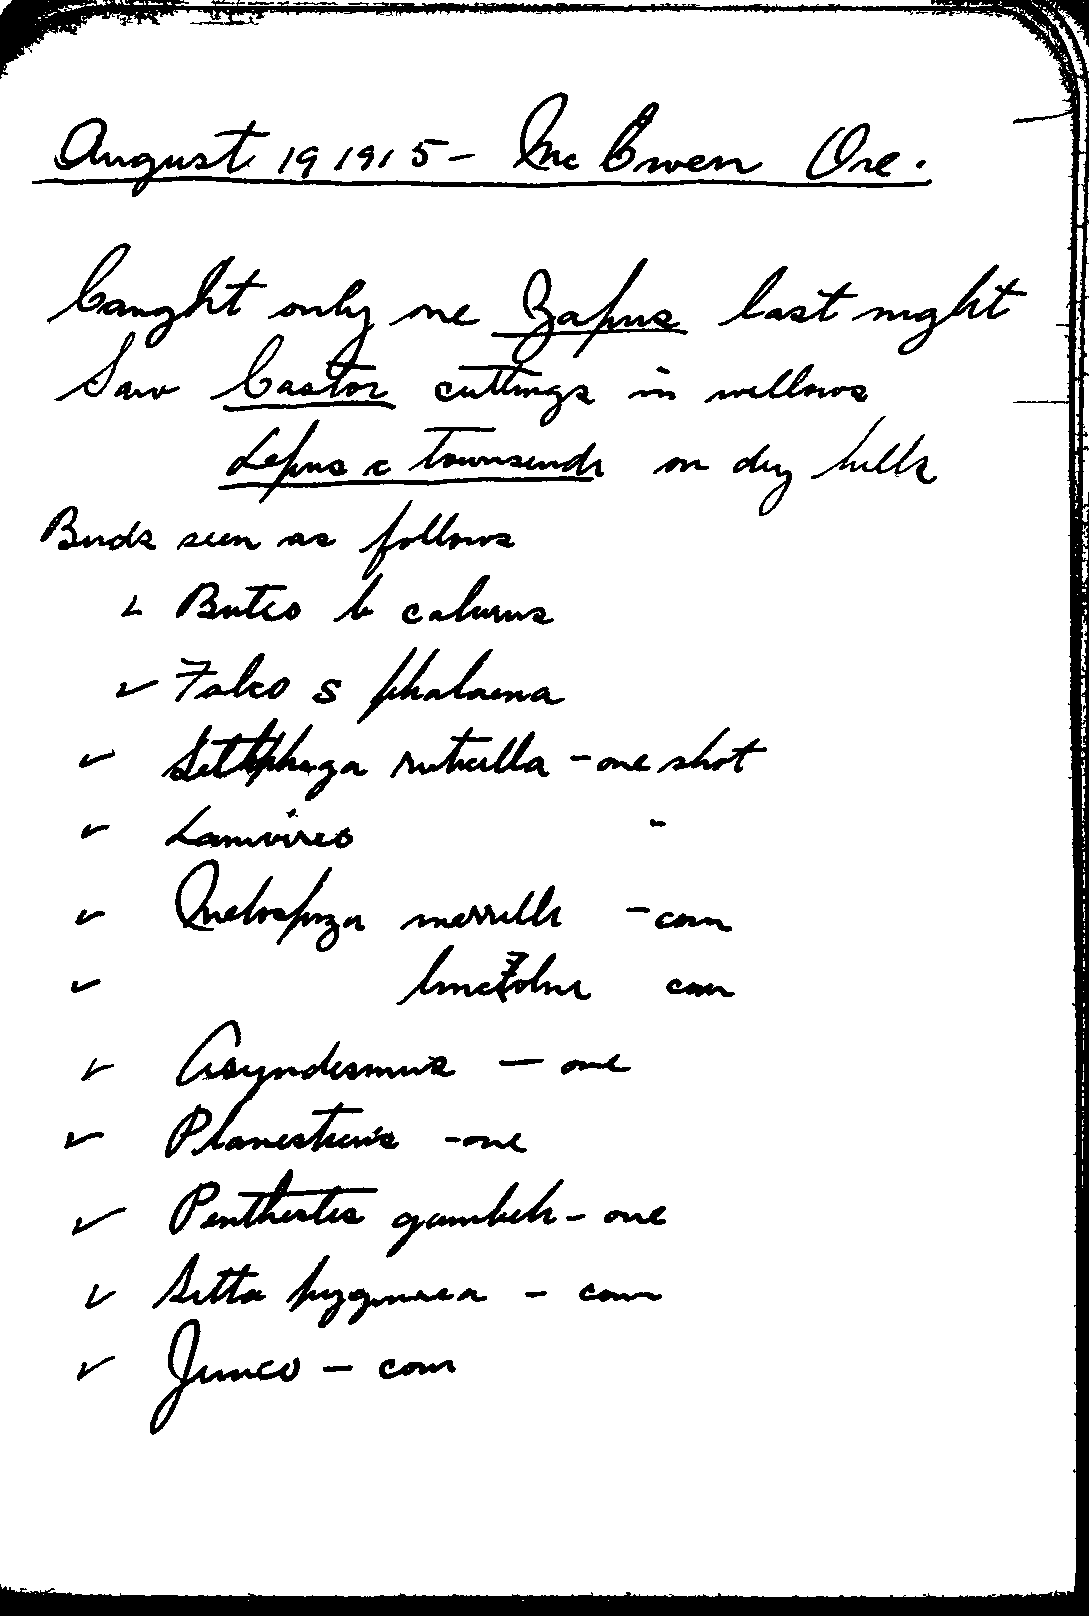 August 19 1915 - McEwen Ore.
Caught only one Zapus last night
Saw Castor cuttings in willows
Lepus c townsendi on dry hills
Birds seen as follows
✓ Buteo b calurus
✓ Falco s phalaena
✓ Setophaga ruticilla - one shot
✓ Lanivireo "
✓ Melospiza merrilli - com
✓ lincolni com
✓ Asyndesmus - one
✓ Planesticus - one
✓ Penthestes gambeli - one
✓ Sitta pygmaea - com
✓ Junco - com